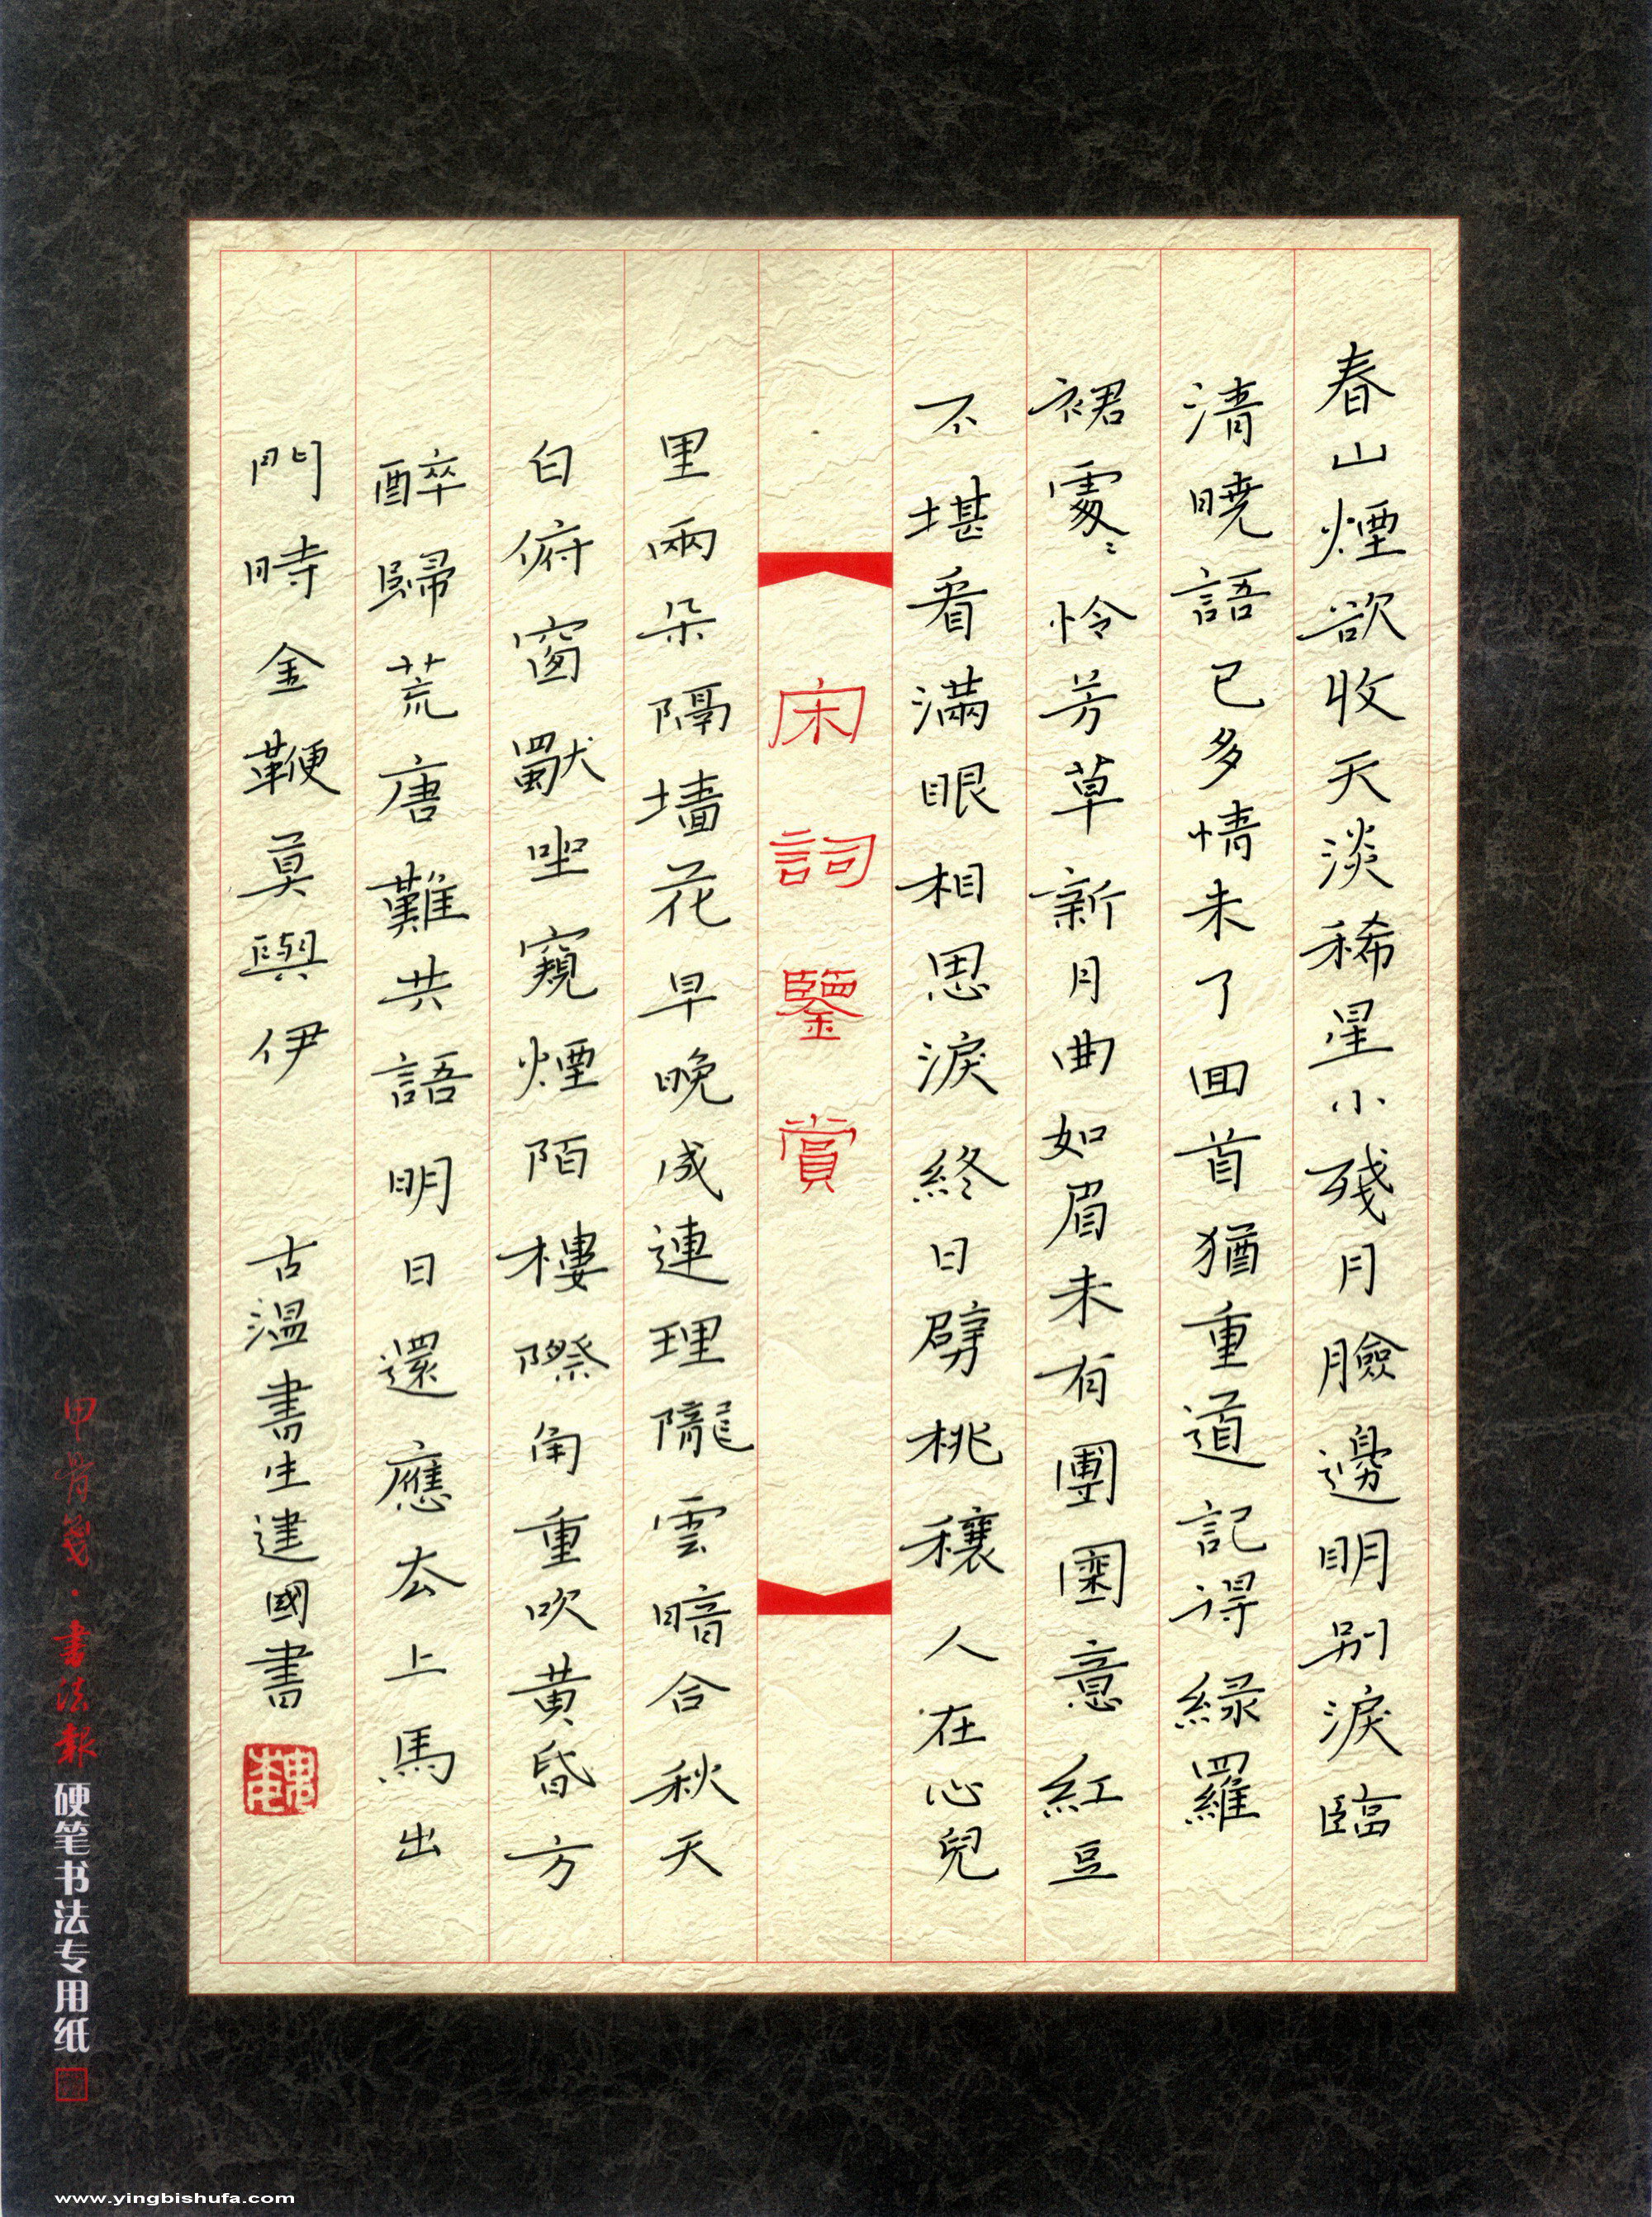 春山煙欲收天淡稀星小殘月臉邊明别淚臨
清曉語已多情未了囬首猶重道記得緑羅
裙處々怜芳草新月曲如眉未有團圞意紅豆
不堪看滿眼相思淚終日劈桃穰人在心兒
宋詞鑒賞
里兩朵隔墻花早晚成連理隴雲暗合秋天
白俯窗獨坐窺煙陌樓際角重吹黄昏方
醉歸荒唐難共語明日還應去上馬出
門時金鞭莫與伊 古溫書生建國書
甲骨箋·書法報硬笔书法专用纸
www.yingbishufa.com